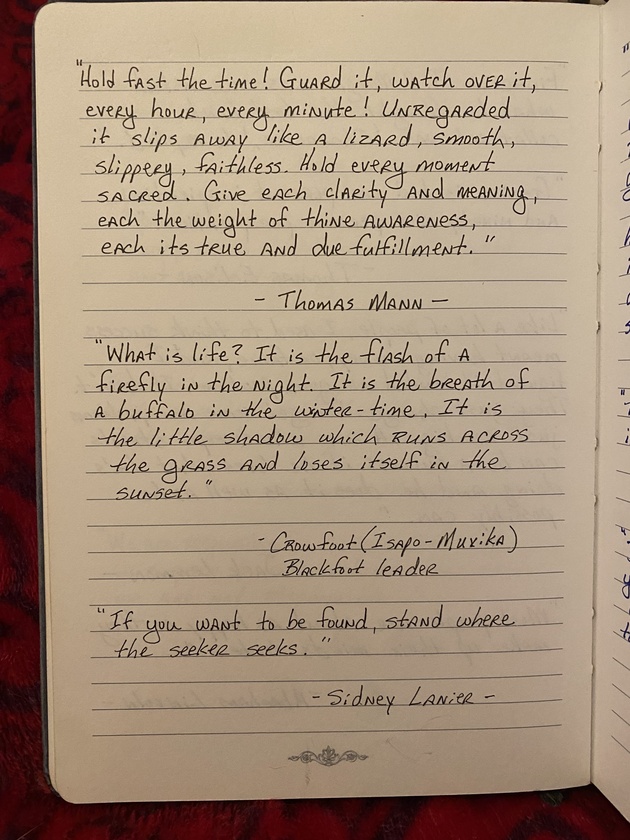 "Hold fast the time! Guard it, watch over it,
every hour, every minute! Unregarded
it slips away like a lizard, smooth,
slippery, faithless. Hold every moment
sacred. Give each clarity and meaning,
each the weight of thine awareness,
each its true and due fulfillment."
- Thomas Mann -
"What is life? It is the flash of a
firefly in the night. It is the breath of
a buffalo in the winter-time. It is
the little shadow which runs across
the grass and loses itself in the
sunset."
- Crowfoot (Isapo-Muxika)
Blackfoot leader
"If you want to be found, stand where
the seeker seeks."
- Sidney Lanier -